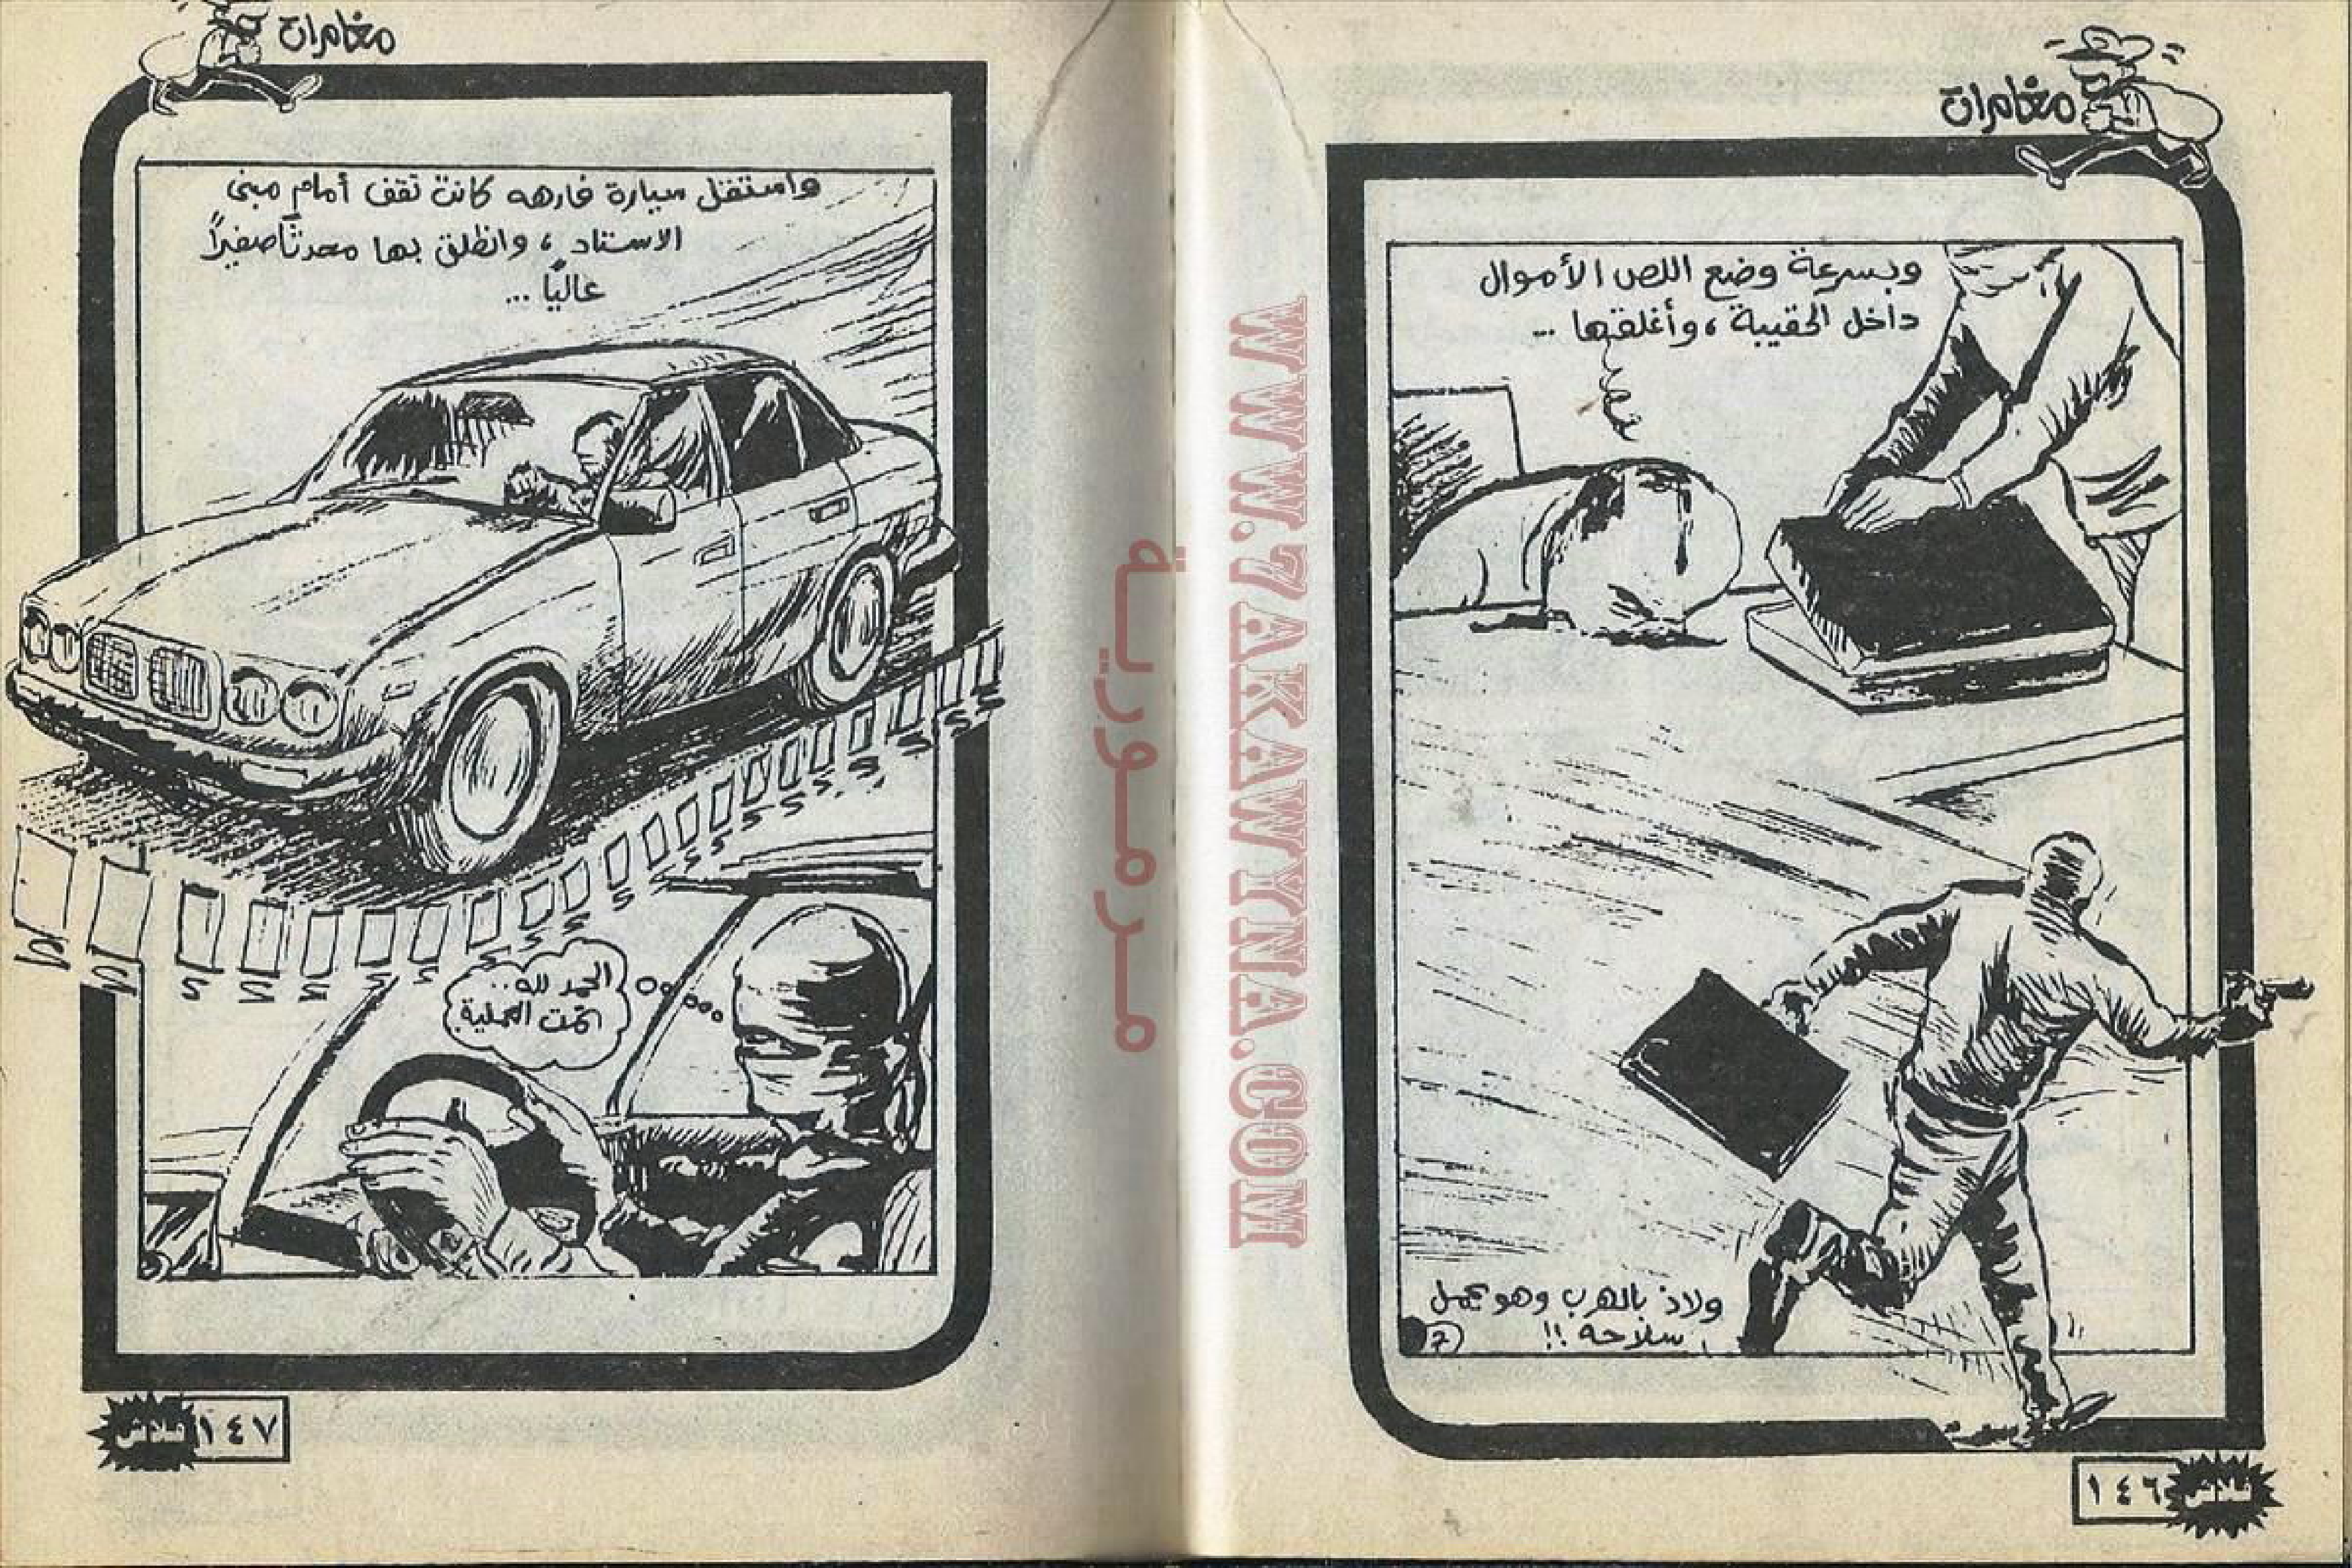 مغامرات
وبسرعة وضع اللص الأموال
داخل الحقيبة ، وأغلقها ...
ولاذ بالهرب وهو يحمل
سلاحه !!
١٤٦
فلاش
WWW.7AKAWYNA.COM
مرمورية
مغامرات
واستقل سيارة فارهه كانت تقف أمام مبنى
الاستاد ، وانطلق بها محدثاً صفيراً
عالياً ...
الحمد لله ..
تمت العملية
١٤٧
فلاش